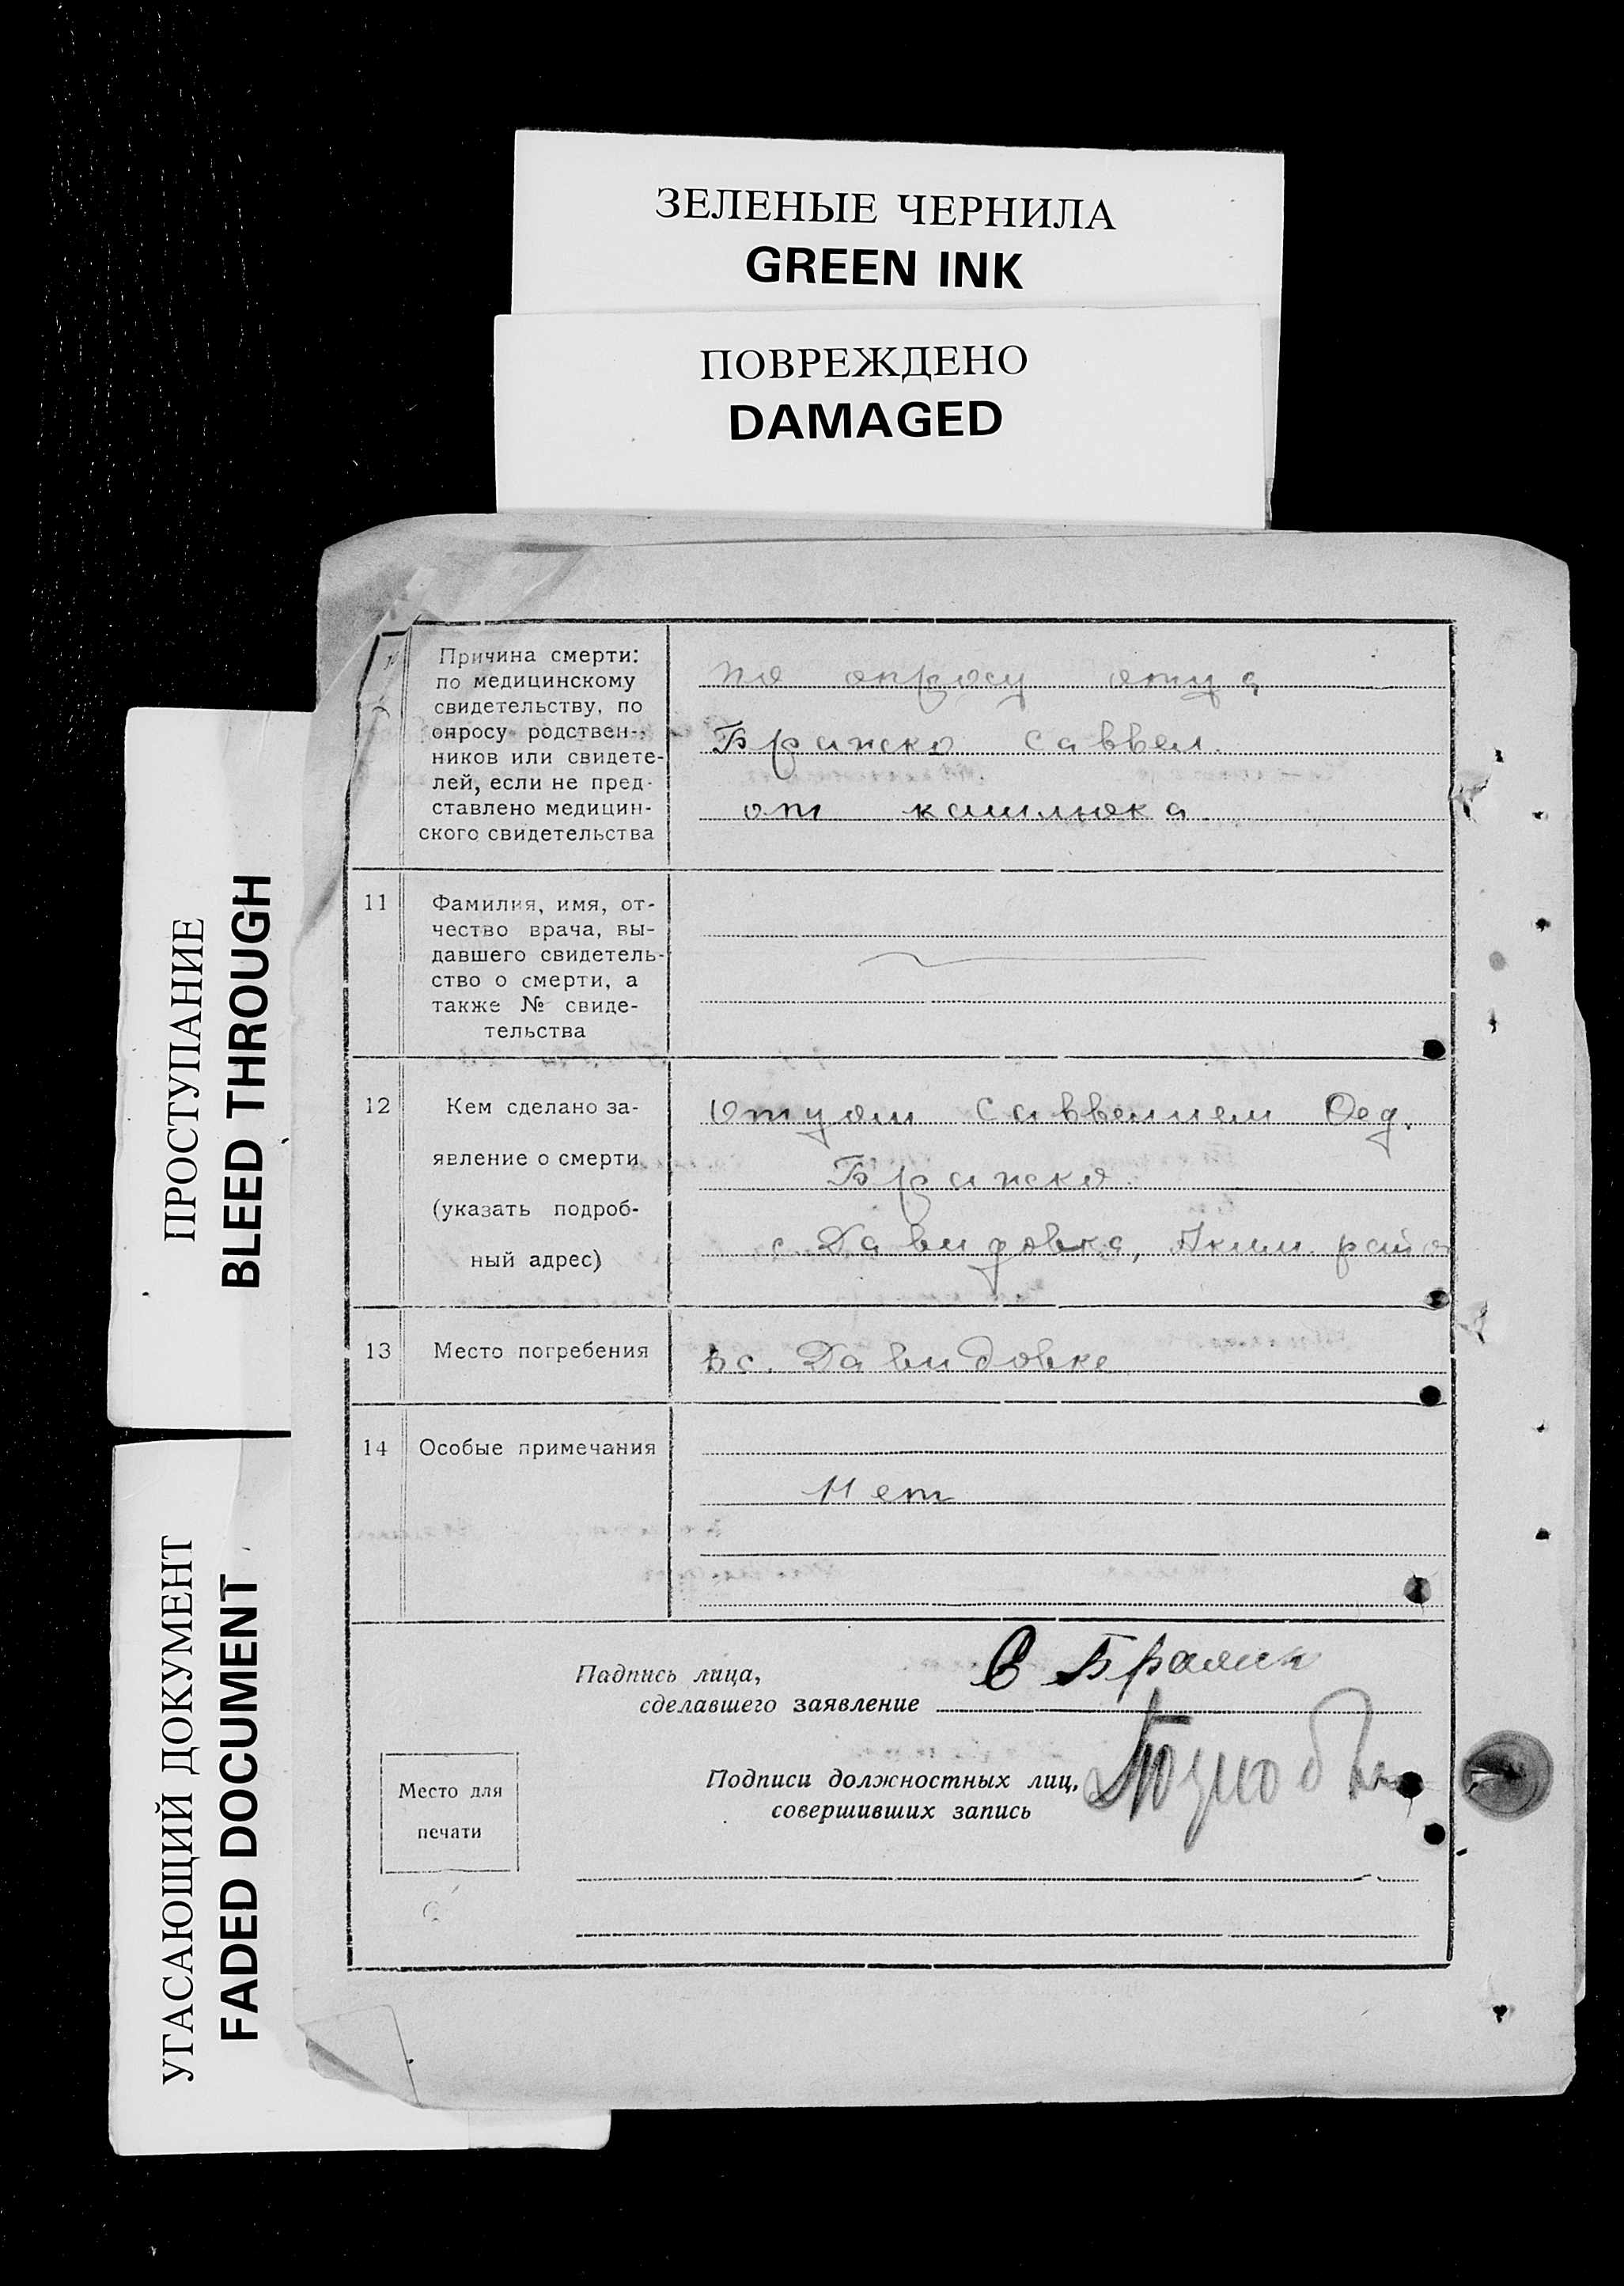 ЗЕЛЕНЫЕ ЧЕРНИЛА
GREEN INK
ПОВРЕЖДЕНО
DAMAGED
ПРОСТУПАНИЕ
BLEED THROUGH
УГАСАЮЩИЙ ДОКУМЕНТ
FADED DOCUMENT
Причина смерти:
по медицинскому
свидетельству, по
опросу родствен-
ников или свидете-
лей, если не пред-
ставлено медицин-
ского свидетельства
по опросу отца
Бражко Саввел.
от кашлюка
11
Фамилия, имя, от-
чество врача, вы-
давшего свидетель-
ство о смерти, а
также № свиде-
тельства
12
Кем сделано за-
явление о смерти
(указать подроб-
ный адрес)
отцом Саввелием Фед.
Бражко
с Давидовка, Аким. район
13 Место погребения
в с. Давидовке
14 Особые примечания
Нет
Падпись лица,
сделавшего заявление
С Бражк
Место для
печати
Подписи должностных лиц,
совершивших запись